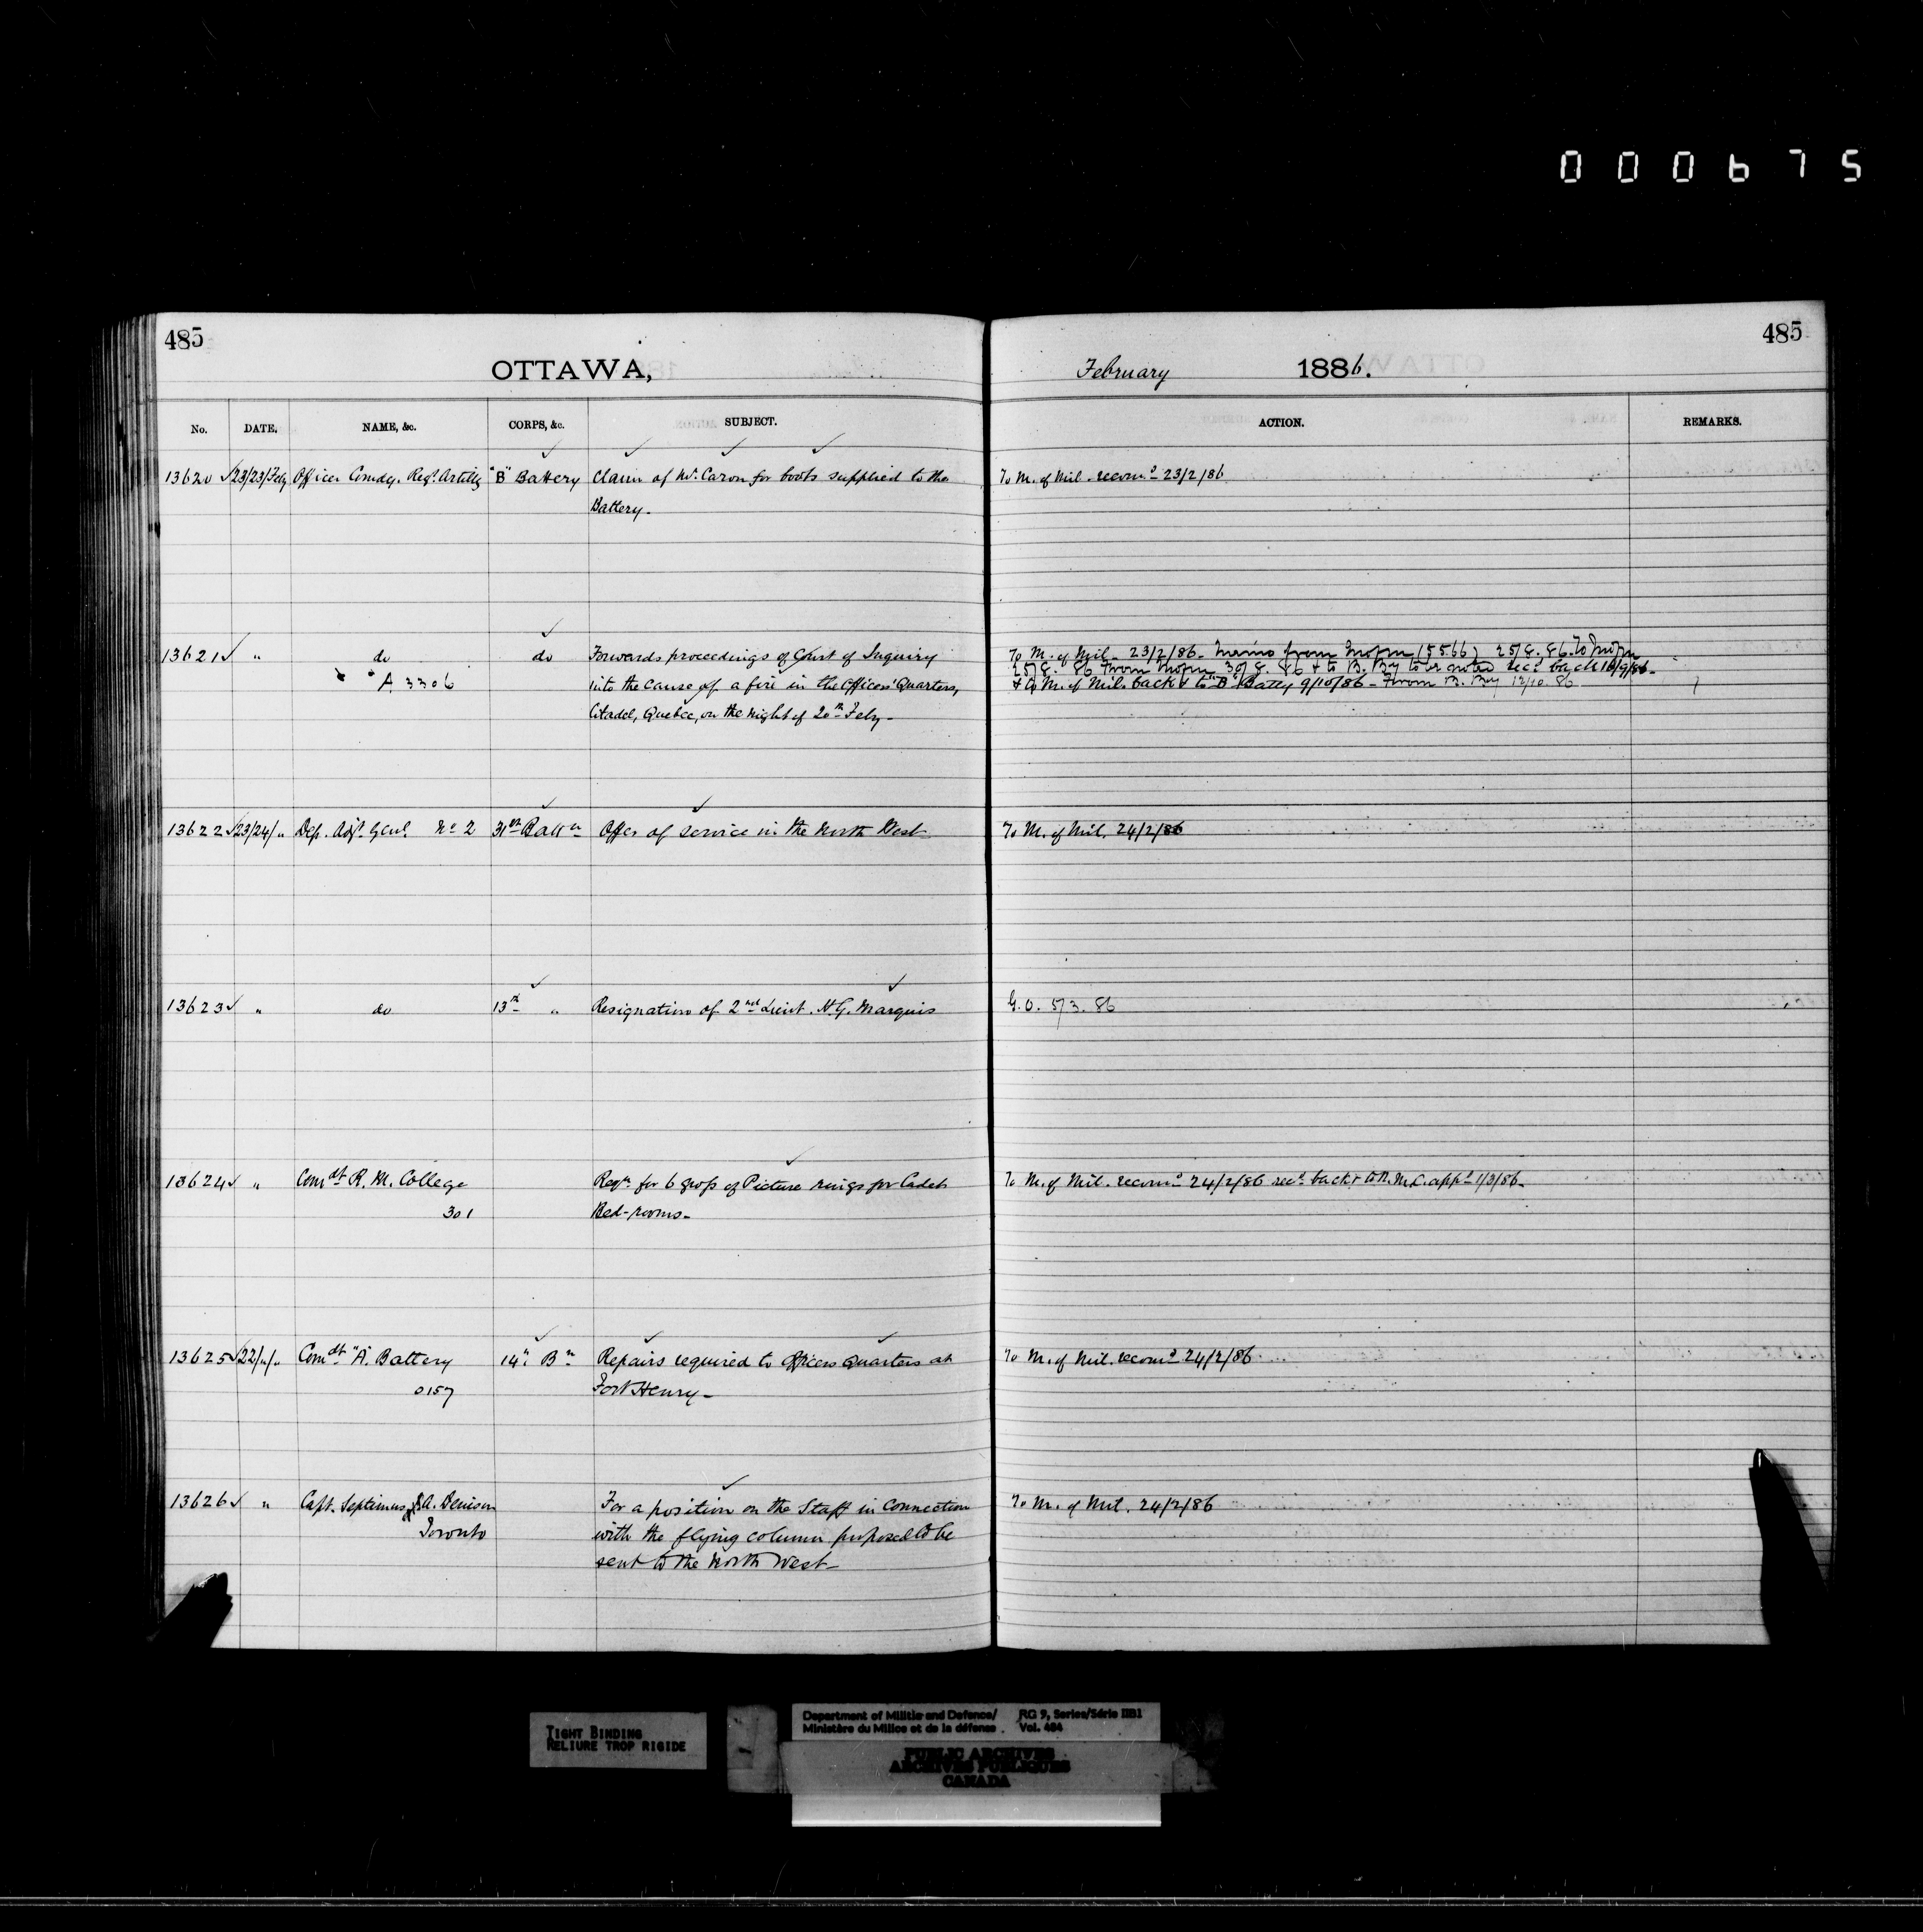 000675
485
485
OTTAWA,
February 1886.
No. DATE. NAME, &c. CORPS, &c. SUBJECT. ACTION. REMARKS.
13620 ✓ 23/23/Feby Officer Comdg. Regt. Artilly "B" Battery Claim of Mr. Caron for boots supplied to the To M. of Mil. recomd 23/2/86
Battery.
13621 ✓ " do do Forwards proceedings of Court of Inquiry To M. of Mil. 23/2/86 - Memo from (5566) 25/8.86. To
" A 3306 into the cause of a fire in the Officers' Quarters, 25/8.86 From 30/8.86 & to B. By to be noted recd back 10/9/86 -
Citadel, Quebec, on the night of 20th Feby - & to M. of Mil. back & to "B" Batty 9/10/86 - From B. By 12/10.86
13622 ✓ 23/24/" Dep. Adjt. Genl. No 2 31st Battn Offer of service in the North West To M. of Mil. 24/2/86
13623 ✓ " do 13th " Resignation of 2nd Lieut. H.G. Marquis G.O. 5/3.86
13624 ✓ " Comdt R. M. College Reqn for 6 gross of Picture rings for Cadets To M. of Mil. recomd 24/2/86 recd back & to R.M.C. appd 1/3/86 -
301 Bed-rooms -
13625 ✓ 22/"/" Comdt "A" Battery 14th Bn Repairs required to Officers Quarters at To M. of Mil. recomd 24/2/86
0157 Fort Henry -
13626 ✓ " Capt. Septimus J.A. Denison For a position on the Staff in connection To M. of Mil. 24/2/86
Toronto with the flying column proposed to be
sent to the North West -
TIGHT BINDING
RELIURE TROP RIGIDE
Department of Militia and Defence/ RG 9, Series/Série IIB1
Ministère du Milice et de la défense. Vol. 484
PUBLIC ARCHIVES
ARCHIVES PUBLIQUES
CANADA